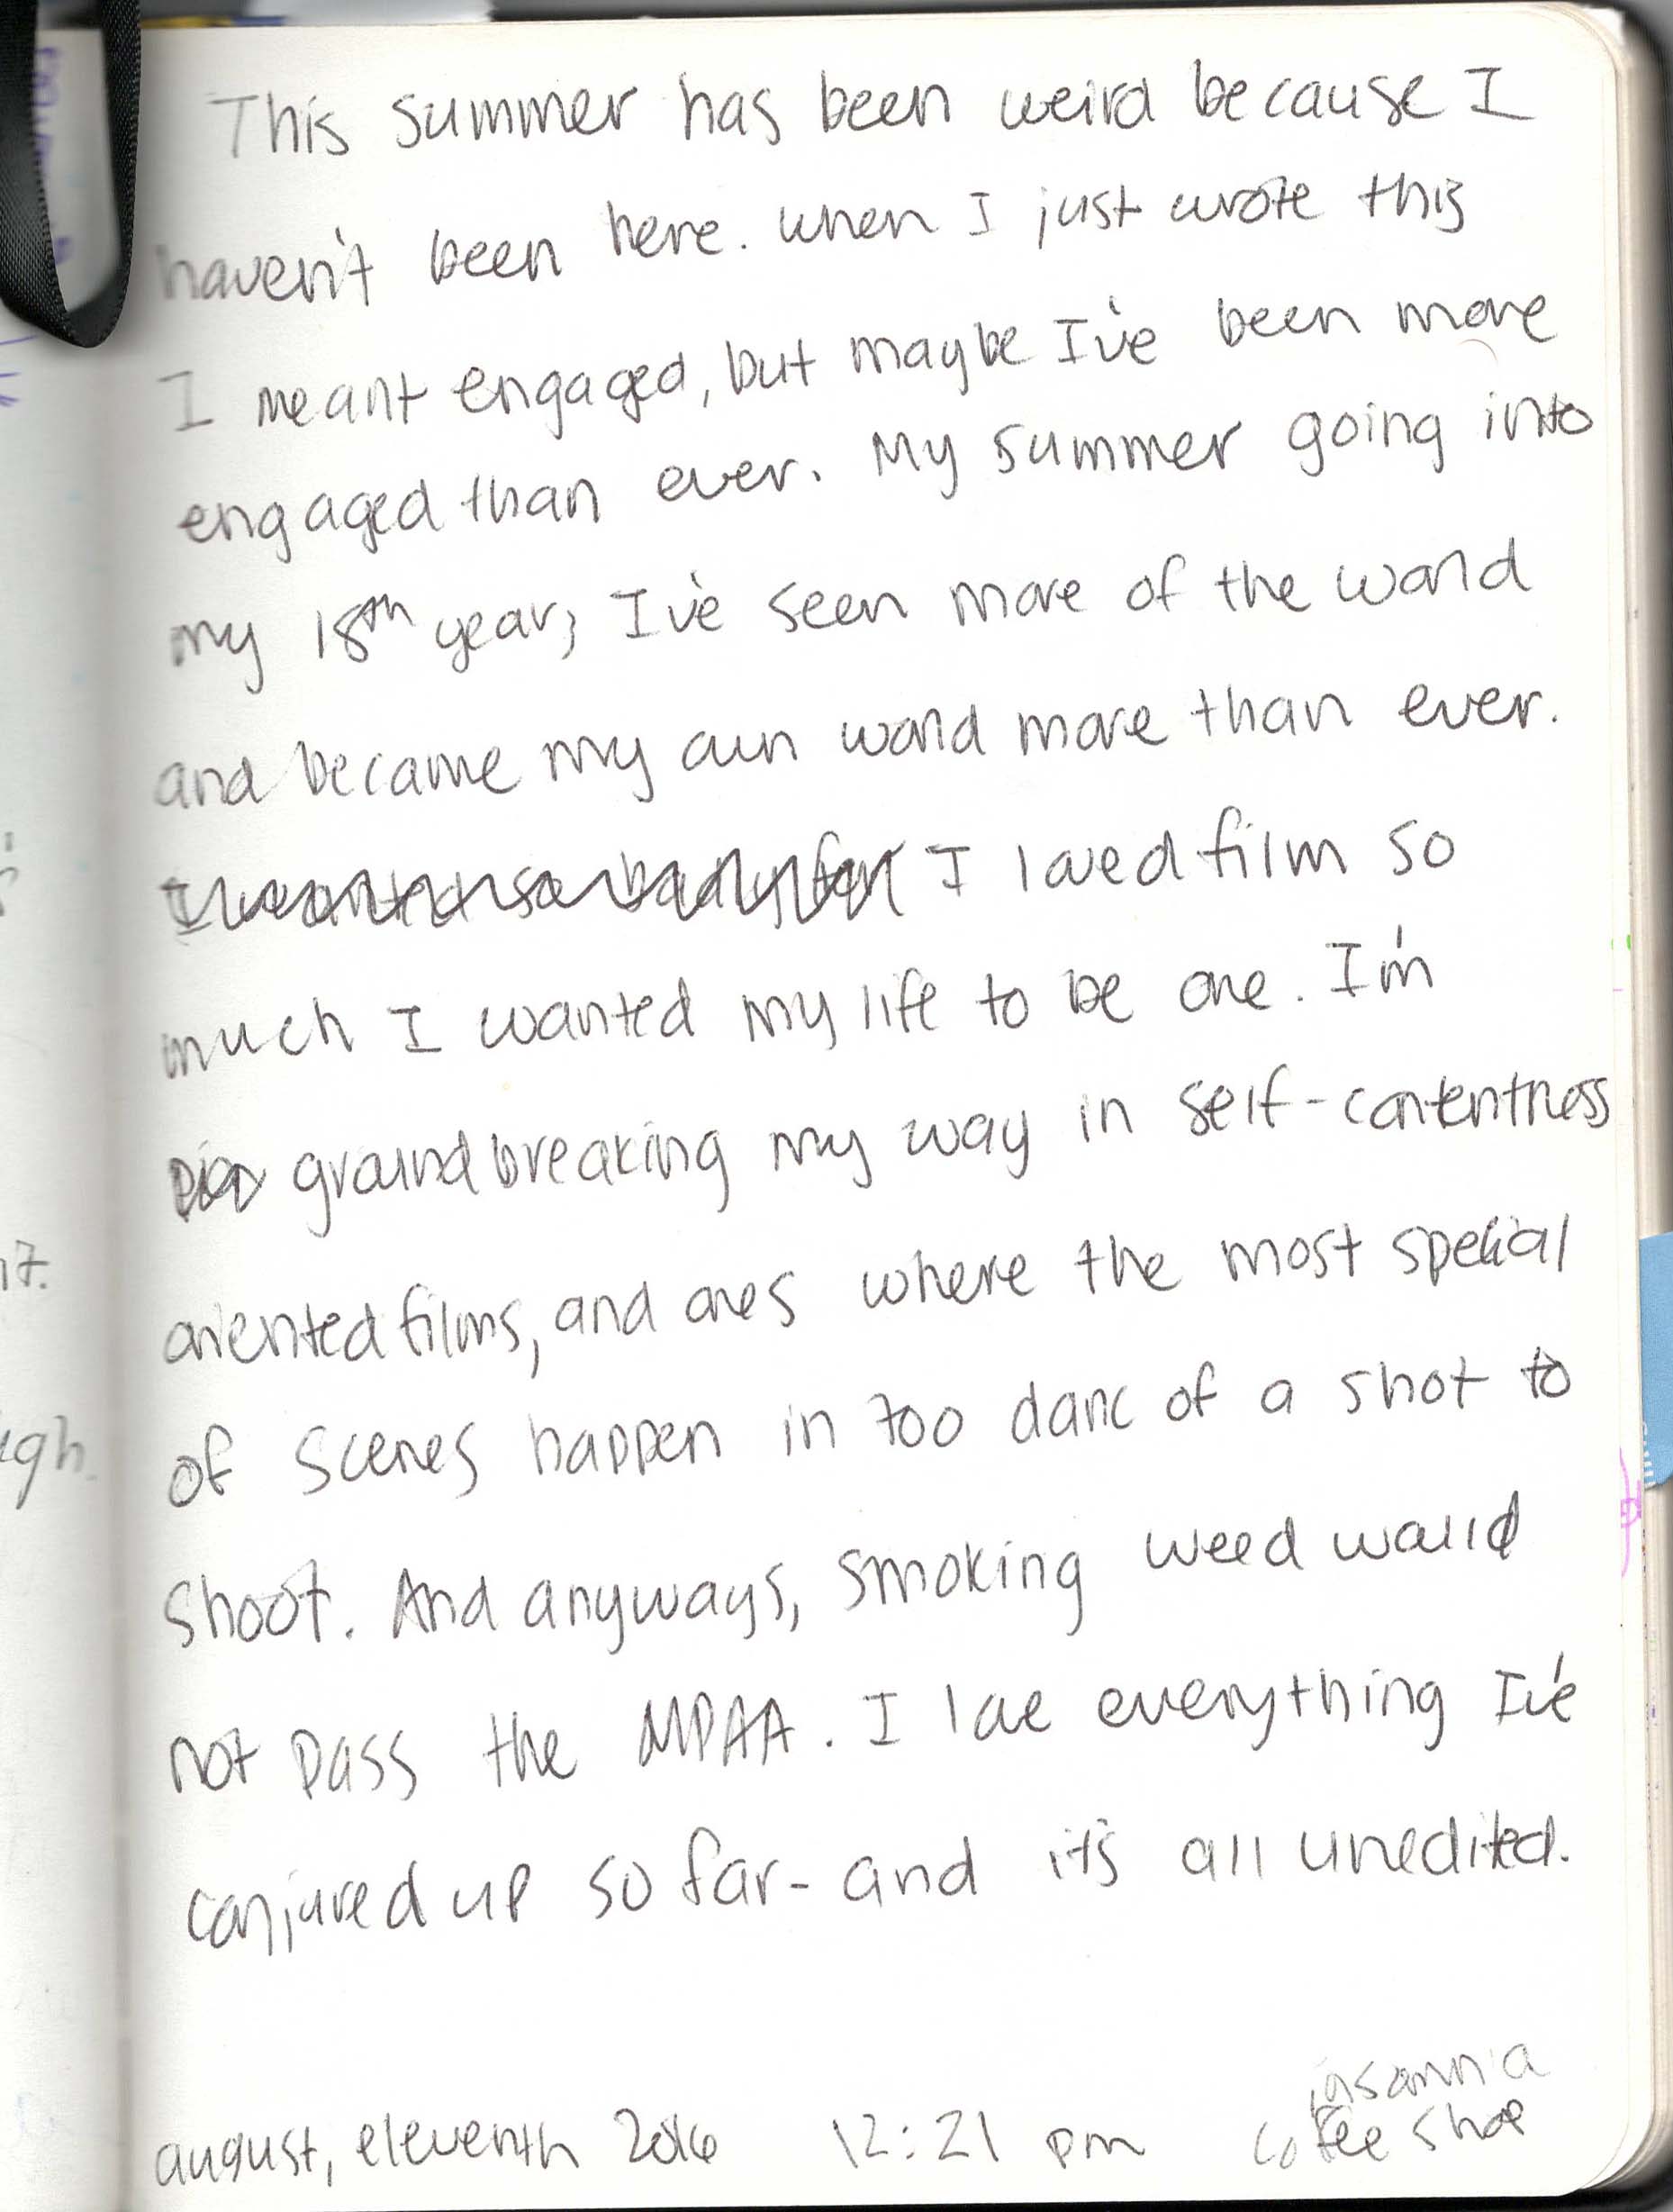 This summer has been weird because I
haven't been here. When I just wrote this
I meant engaged, but maybe I've been more
engaged than ever. My summer going into
my 18th year, I've seen more of the world
and became my own world more than ever.
I wanted so badly for I loved film so
much I wanted my life to be one. I'm
groundbreaking my way in self-contentness
oriented films, and ones where the most special
of scenes happen in too dark of a shot to
shoot. And anyways, smoking weed would
not pass the MPAA. I love everything I've
conjured up so far- and it's all unedited.
insomnia
august, eleventh 2016 12:21 pm coffee shop
17.
igh.